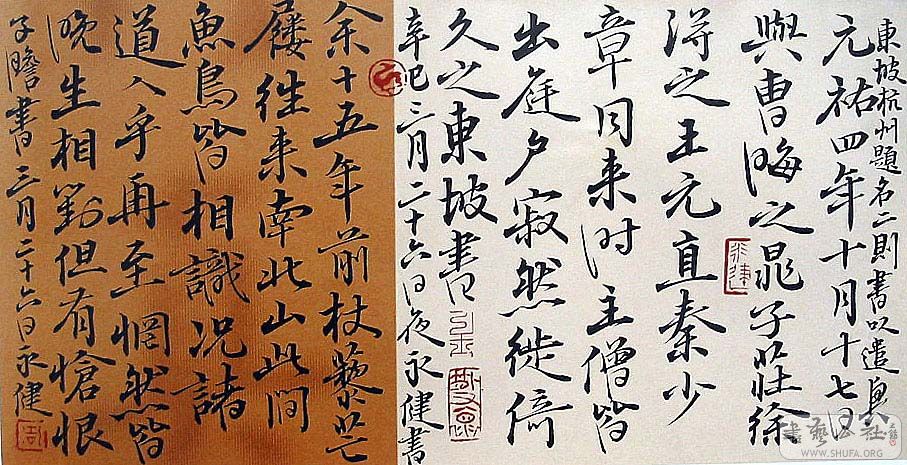 東坡杭州題名二則書以遣興
元祐四年十月十七日
與曹晦之晁子莊徐
得之王元直秦少
章同来时主僧皆
出庭夕寂然徙倚
久之東坡書
辛巳三月二十六日夜永健書
余十五年前杖藜芒
屨往来南北山此间
魚鳥皆相識况諸
道人乎再至惘然皆
晚生相對但有愴恨
子瞻書三月二十六日永健
書藝公社
WWW.SHUFA.ORG